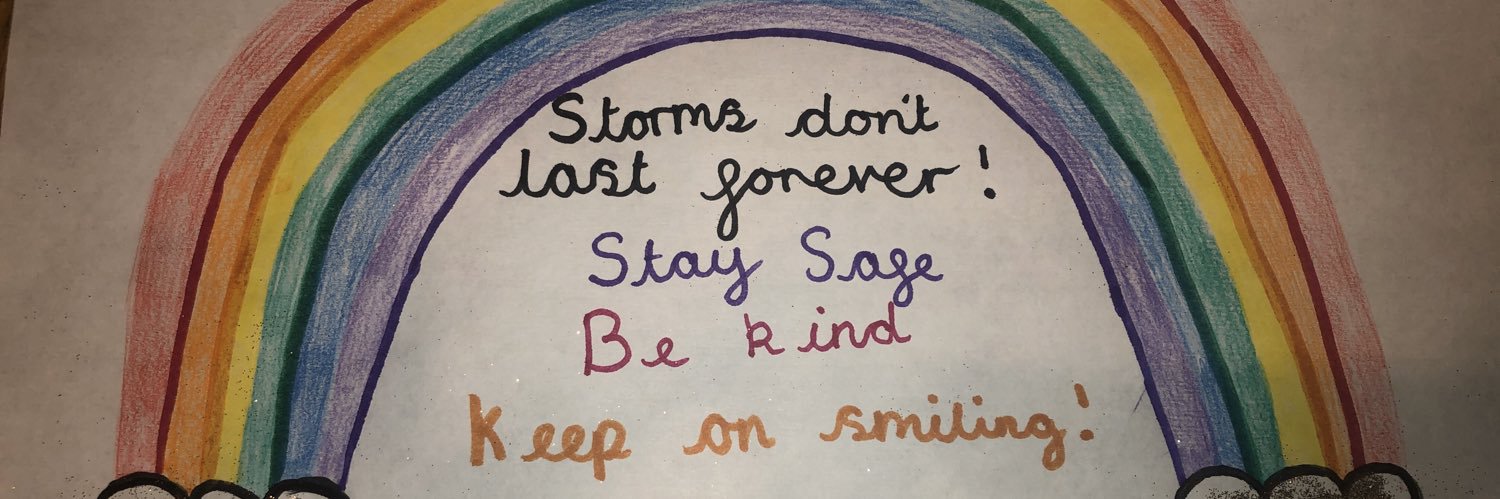 Storms don't
last forever!
Stay Safe
Be kind
Keep on smiling!